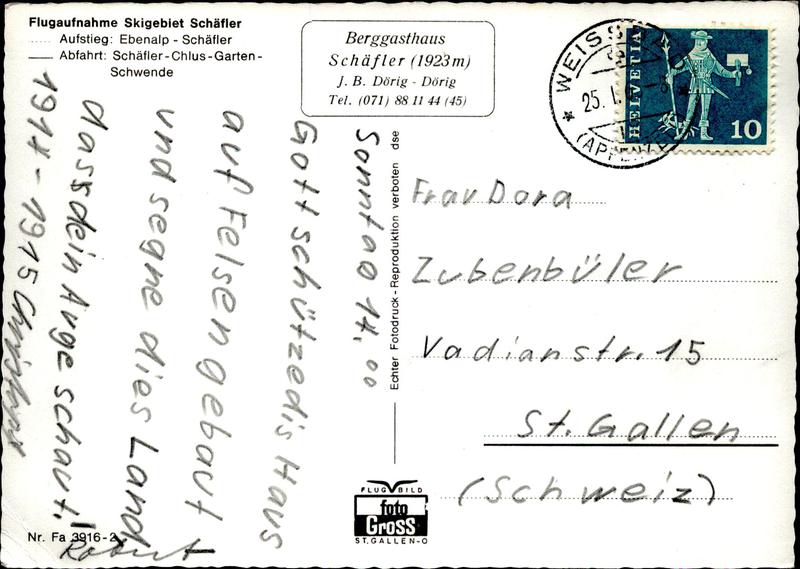 Flugaufnahme Skigebiet Schäfler
Aufstieg: Ebenalp - Schäfler
Abfahrt: Schäfler-Chlus-Garten-
Schwende
Berggasthaus
Schäfler (1923m)
J. B. Dörig - Dörig
Tel. (071) 88 11 44 (45)
HELVETIA
10
25. I.
Sonntag 14,00
Gott schütze dis Haus
auf Felsen gebaut
und segne dies Land
dass dein Auge schaut!
1914 - 1915
Robert
Frau Dora
Zubenbüler
Vadianstr. 15
St. Gallen
(Schweiz)
Echter Fotodruck - Reproduktion verboten dse
FLUGBILD
foto
Gross
ST.GALLEN-O
Nr. Fa 3916-2